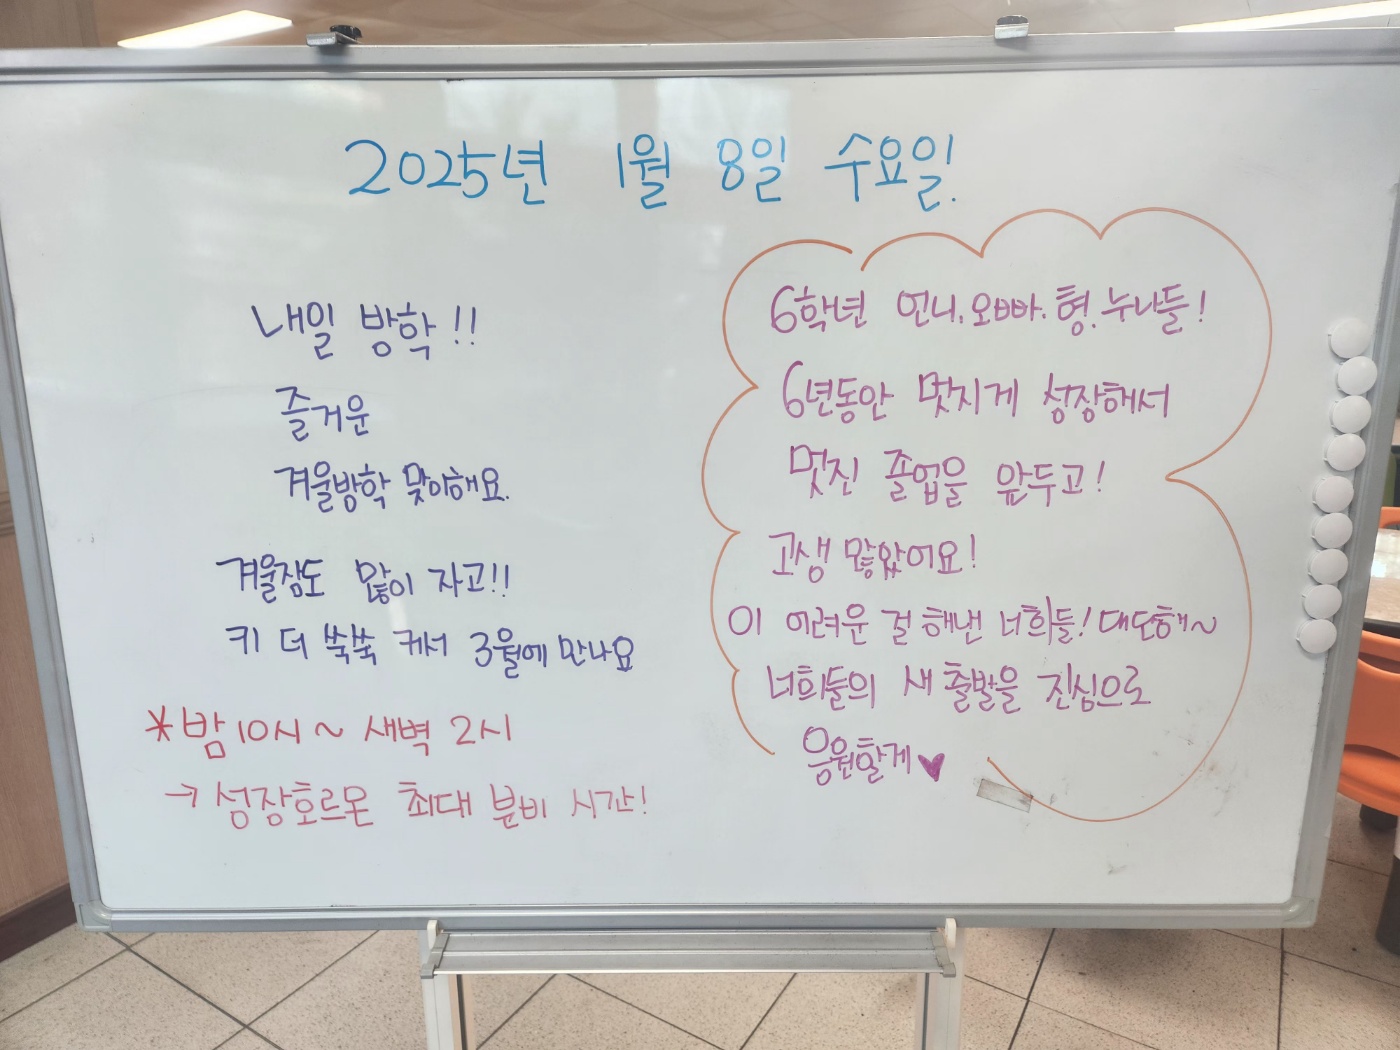 2025년 1월 8일 수요일.
내일 방학!!
즐거운
겨울방학 맞이해요.
겨울잠도 많이 자고!!
키 더 쑥쑥 커서 3월에 만나요
*밤 10시~ 새벽 2시
→ 성장호르몬 최대 분비 시간!
6학년 언니.오빠.형.누나들!
6년동안 멋지게 성장해서
멋진 졸업을 앞두고!
고생 많았어요!
이 어려운 걸 해낸 너희들! 대단해~
너희들의 새 출발을 진심으로
응원할게♥